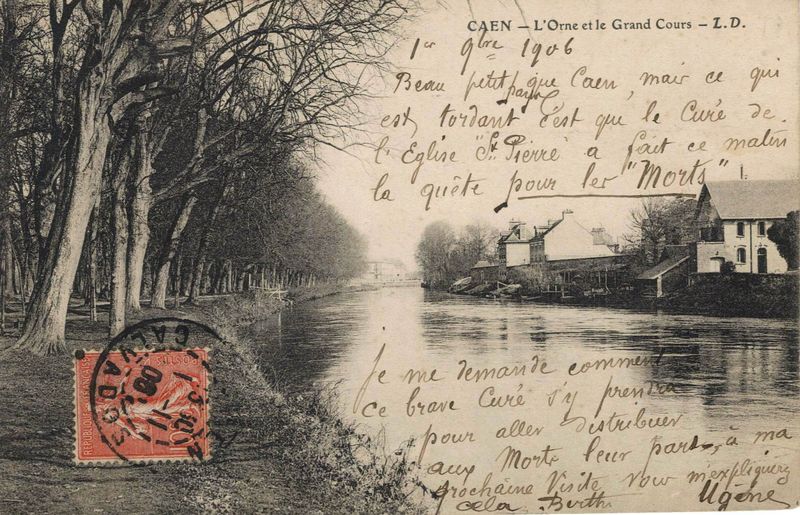 CAEN – L'Orne et le Grand Cours – L.D.
1er 9bre 1906
Beau petit pays que Caen, mais ce qui
est tordant c'est que le Curé de
l'Eglise "St Pierre" a fait ce matin
la quête pour les "Morts"
Je me demande comment
ce brave Curé s'y prendra
pour aller distribuer
aux Morts leur part, à ma
prochaine Visite vous m'expliquerez
cela Berthe Ugène
CALVADOS
REPUBLIQUE FRANÇAISE
POSTES
10